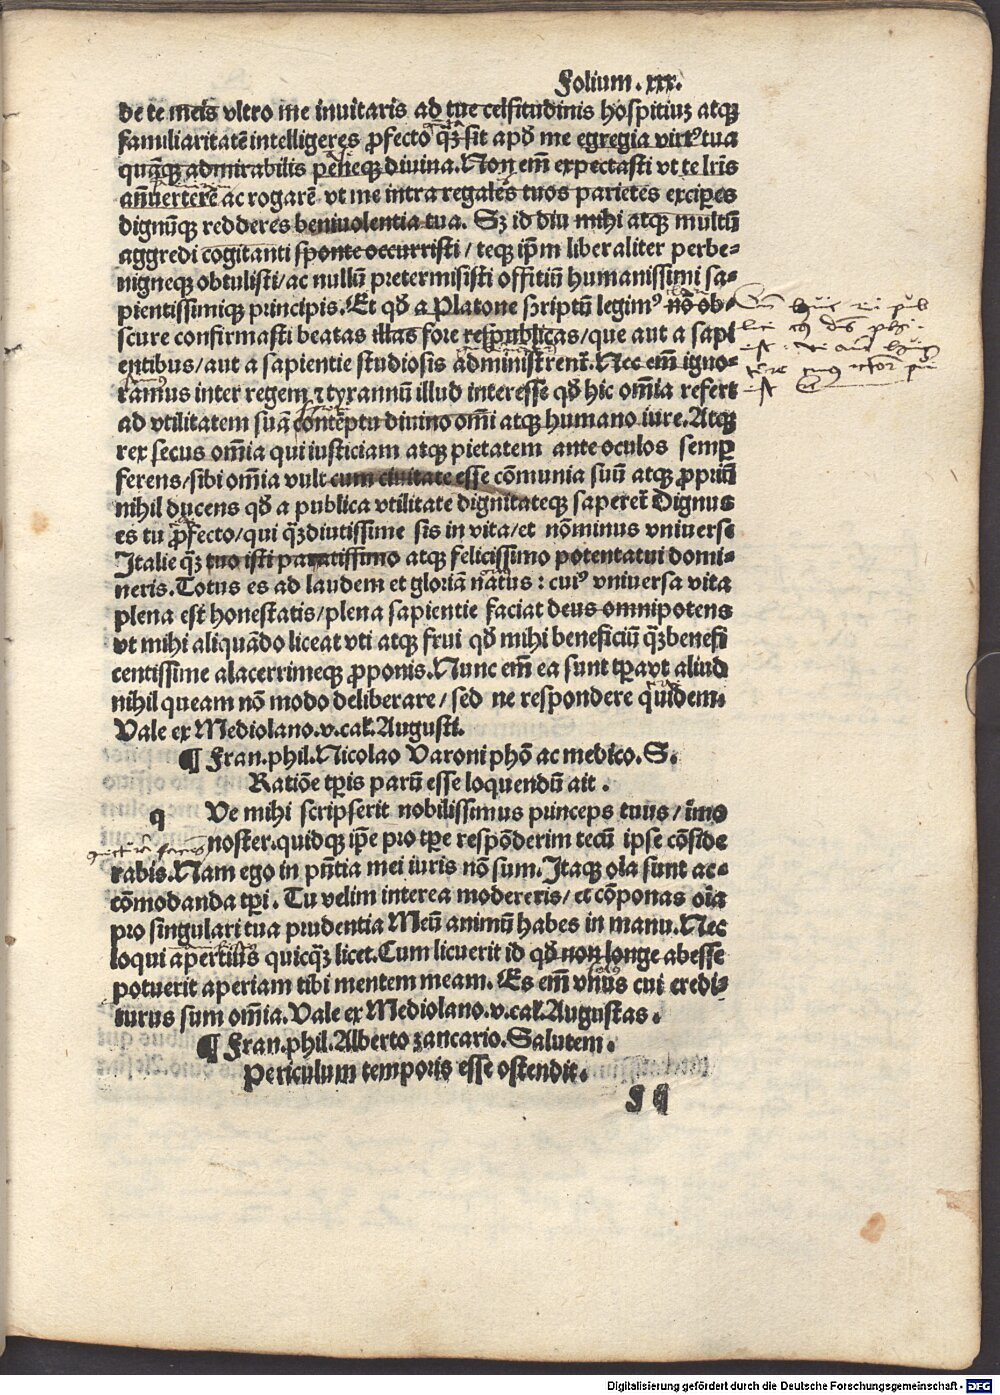 Folium. xxx.
de te meis vltro me inuitaris ad tue celsitudinis hospitiuꝫ atqꝫ
familiaritatē intelligeres ꝓfecto q̄ꝫ sit apd̄ me egregia virt᷒ tua
quāqꝫ admirabilis peneqꝫ diuina. Non em̄ expectasti vt te lr̄is
anīuerterē ac rogarē vt me intra regales tuos parietes exciperes
dignūqꝫ redderes beniuolentia tua. Sꝫ id diu mihi atqꝫ multū
aggredi cogitanti sponte occurristi / teqꝫ ip̄m liberaliter perbe-
nigneqꝫ obtulisti / ac nullū pretermisisti offitiū humanissimi sa-
pientissimiqꝫ principis. Et qd̄ a Platone scriptū legim᷒ nō ob-
scure confirmasti beatas illas fore respublicas / que aut a sapi
entibus / aut a sapientie studiosis administrent̄. Nec em̄ igno-
ramus inter regem ⁊ tyrannū illud interesse qd̄ hic om̄ia refert
ad vtilitatem suā contēptu diuino om̄i atqꝫ humano iure. Atqꝫ
rex secus om̄ia qui iusticiam atqꝫ pietatem ante oculos semꝑ
ferens / sibi om̄ia vult cum ciuitate esse cōmunia suū atqꝫ ꝓpriū
nihil ducens qd̄ a publica vtilitate dignitateqꝫ saperet̄ Dignus
es tu ꝓfecto / qui q̄ꝫdiutissime sis in vita / et nō minus vniuerse
Italie q̄ꝫ tuo isti paratissimo atqꝫ felicissimo potentatui domi-
neris. Totus es ad laudem et gloriā natus : cui᷒ vniuersa vita
plena est honestatis / plena sapientie faciat deus omnipotens
vt mihi aliquādo liceat vti atqꝫ frui qd̄ mihi beneficiū q̄ꝫ benefi
centissime alacerrimeqꝫ ꝓponis. Nunc em̄ ea sunt tꝑa vt aliud
nihil queam nō modo deliberare / sed ne respondere quidem.
Vale ex Mediolano. v. cal̄. Augusti.
¶ Fran. phil. Nicolao Varoni phō ac medico. S.
Ratiōe tꝑis parū esse loquendū ait .
q Ue mihi scripserit nobilissimus princeps tuus / imo
noster. quidqꝫ ip̄e pro tꝑe respōderim tecū ipse cōside
rabis. Nam ego in pn̄tia mei iuris nō sum. Itaqꝫ oīa sunt ac-
cōmodanda tꝑi . Tu velim interea modereris / et cōponas oīa
pro singulari tua prudentia Meū animū habes in manu. Nec
loqui apertius quicq̄ꝫ licet. Cum licuerit id qd̄ non longe abesse
potuerit aperiam tibi mentem meam. Es em̄ vnus cui credi-
turus sum om̄ia. Vale ex Mediolano. v. cal̄. Augustas .
¶ Fran. phil. Alberto zancario. Salutem .
Periculum temporis esse ostendit .
Digitalisierung gefördert durch die Deutsche Forschungsgemeinschaft - DFG